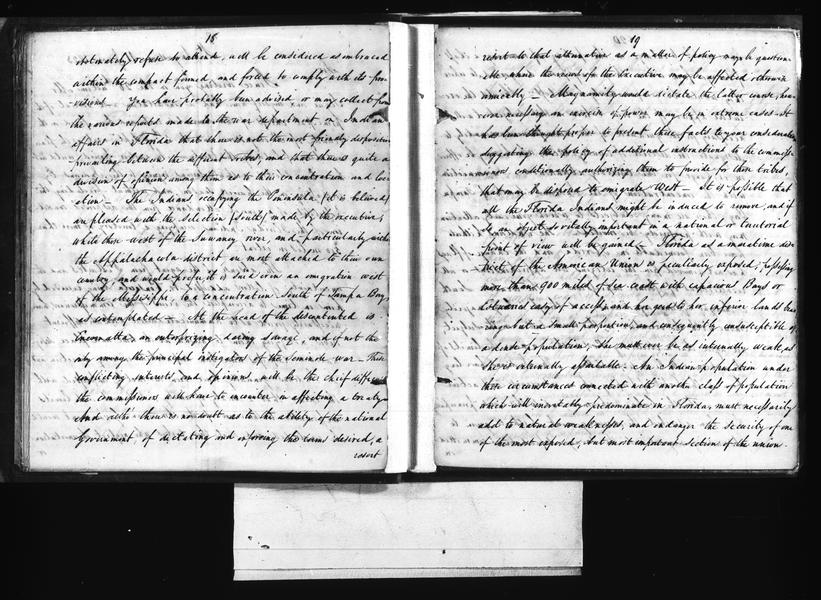 18
obstinately refuse to attend, will be considered as embraced
within the compact formed, and forced to comply with its pro-
visions. You have probably been advised or may collect from
the various reports made to the war department on Indian
affairs in Florida that there is not the most friendly disposition
prevailing between the different tribes, and that there is quite a
division of opinion among them as to their concentration and loc-
ation — The Indians occupying the Peninsula (it is believed)
are pleased with the selection (South) made by the executive;
while those west of the Suwaney river, and particularly within
the Appalachacola district are most attached to their own
country, and would prefer it is said even an emigration west
of the Mississippi, to a concentration South of Tampa Bay
as contemplated — At the head of the discontented is
Eneomatta an enterprizing daring savage, and if not the
only among the principal instigators of the Seminole war — These
conflicting interests and opinions will be the chief
the commissioners will have to encounter in affecting a treaty
And altho' there is no doubt as to the ability of the national
Government of dictating and enforcing the terms desired, a
resort
19
resort to that alternative as a matter of policy may be question-
able where the views of the Executive may be affected otherwise
amicably — Magnanimity would dictate the latter course, how-
ever necessary an exercise of power may be in extreme cases. It
has been thought proper to present these facts to your consideration
suggesting the policy of additional instructions to the commiss-
ioners conditionally authorizing them to provide for those tribes,
that may be disposed to emigrate West — It is possible that
all the Florida Indians might be induced to remove, and if
so an object so vitally important in a national or territorial
point of view will be gained — Florida as a maratime dis-
trict of the American Union is peculiarly exposed, possessing
more than 900 miles of sea coast with capacious Bays or
Estuaries easy of access and her good to her inferior lands bea-
ring but a small proportion, and consequently unsusceptible of
a dense population, She must ever be as internally weak, as
She is externally assailable. An Indian population under
these circumstances connected with another class of population
which will inevitably predominate in Florida, must necessarily
add to natural weaknesses, and endanger the security of one
of the most exposed, but most important section of the union.